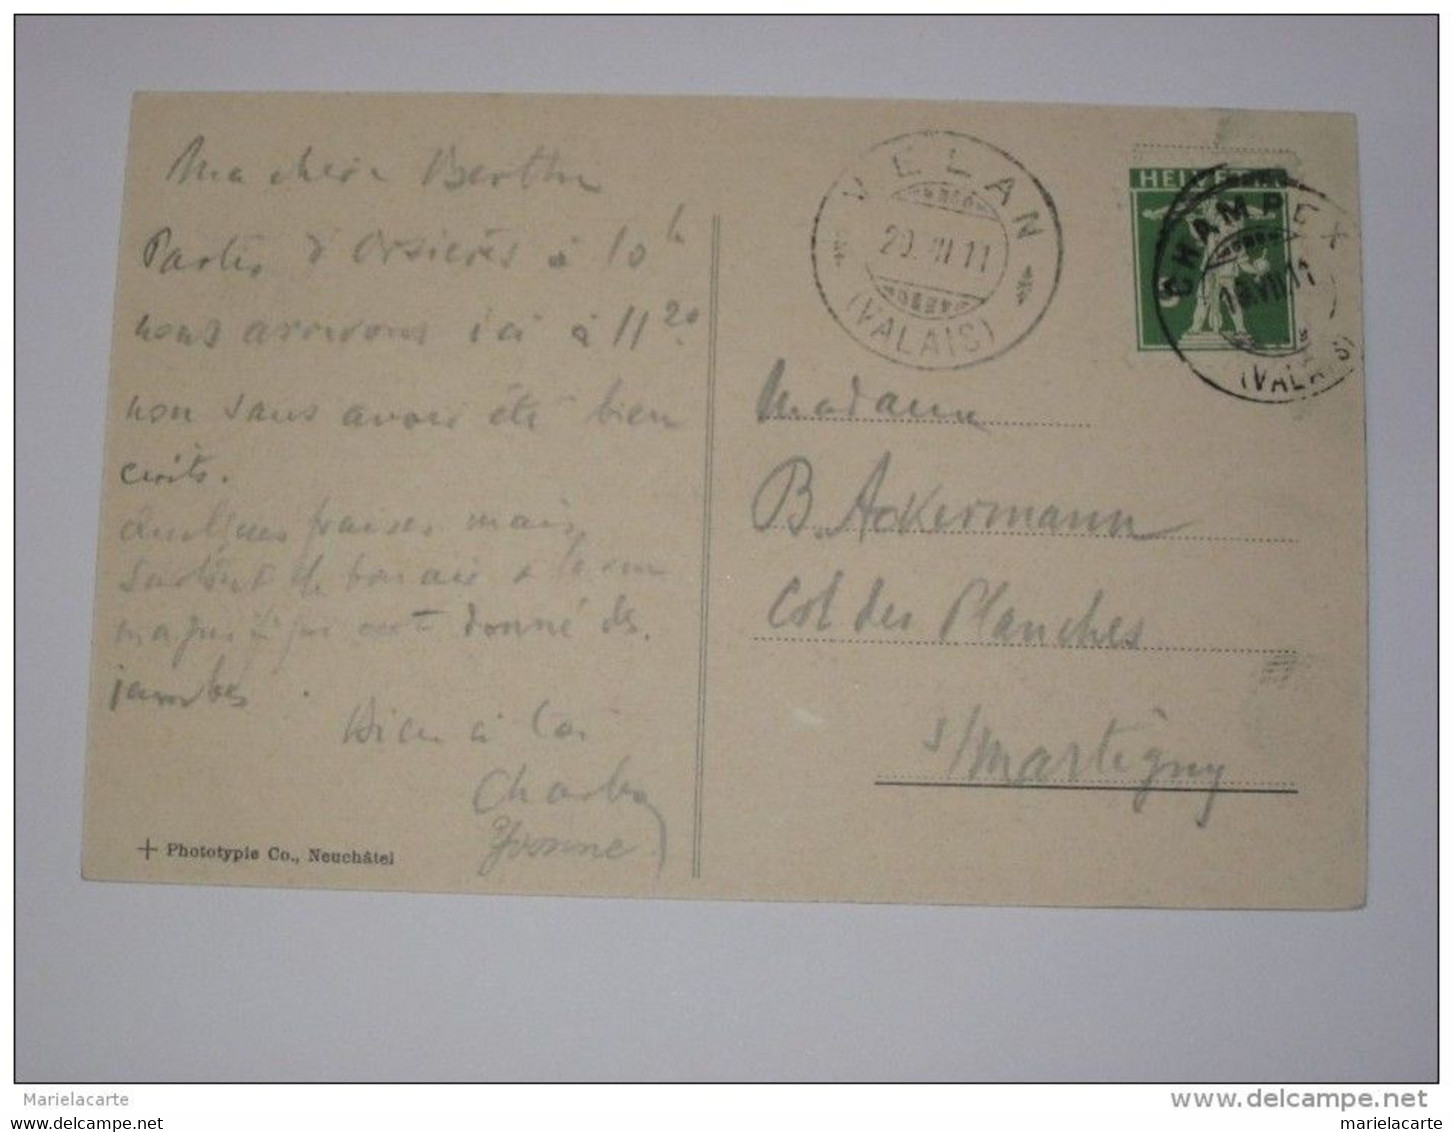 Ma chère Berthe
Partis d'Orsières à 10 h
nous arrivons ici à 11 20.
non sans avoir été bien
cuits.
Quelques fraises mais
surtout
donné des
jambes.
à toi
Charles
Yvonne
+ Phototypie Co., Neuchâtel
VELAN
20. VII 11
(VALAIS)
HELVE
CHAMPEX
VII. 11
(VALAIS)
Madame
B. Ackermann
Col des Planches
s/Martigny
Marielacarte
www.delcampe.net
www.delcampe.net
marielacarte